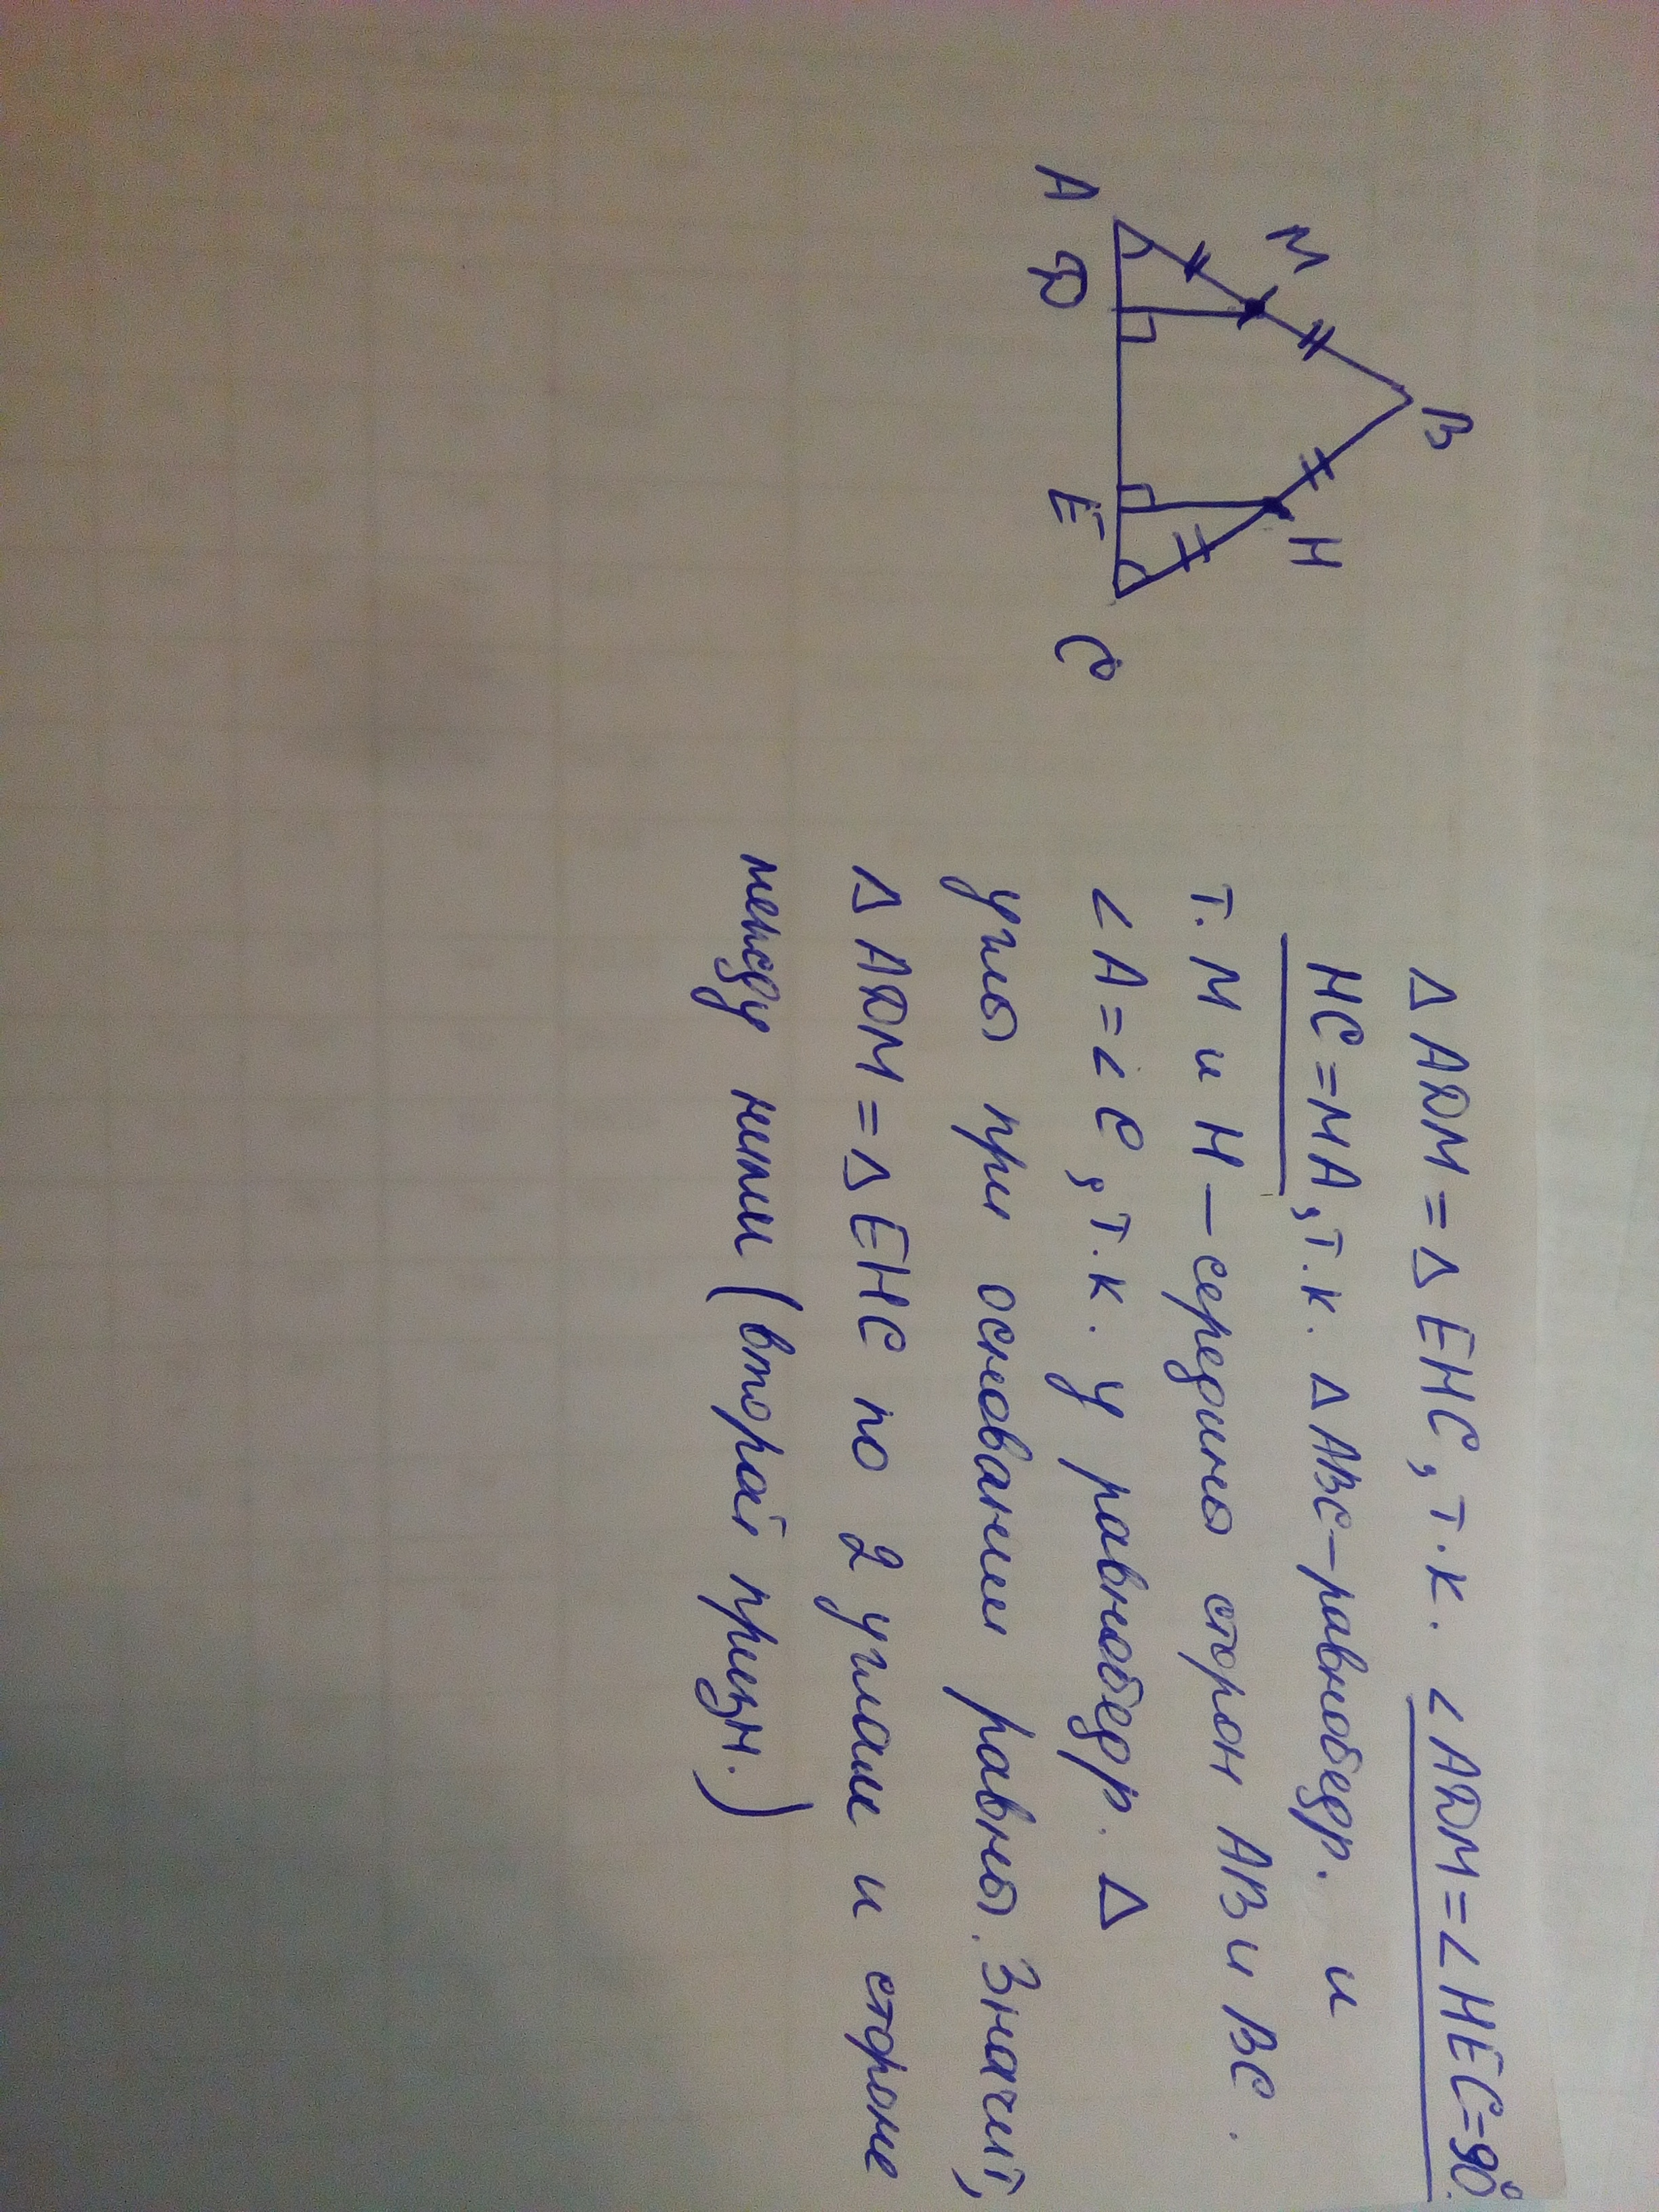 B
M
H
A
D
E
C
Δ ADM = Δ EHC, т.к. ∠ADM=∠HEC=90°.
HC=MA, т.к. Δ ABC–равнобедр. и
т. M и H – середины сторон AB и BC.
∠A=∠C, т.к. у равнобедр. Δ
углы при основании равны. Значит,
Δ ADM = Δ EHC по 2 углам и стороне
между ними (второй призн.)